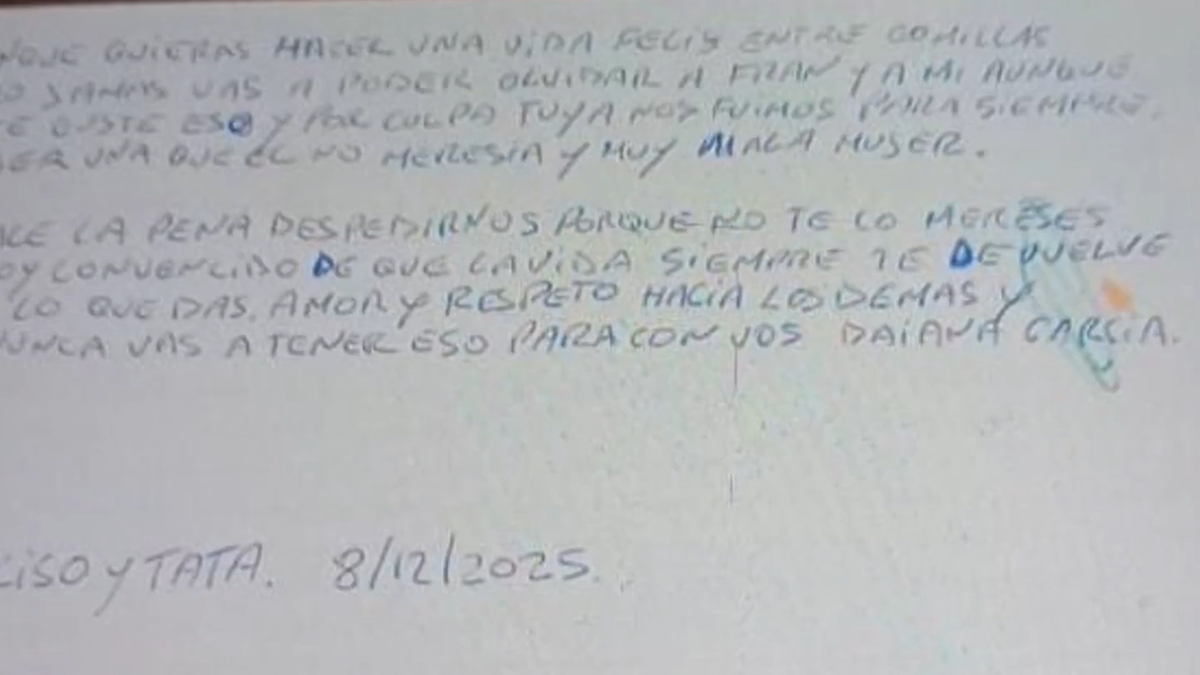 QUIERAS HACER UNA VIDA FELIS ENTRE COMILLAS
JAMAS VAS A PODER OLVIDAR A FRAN Y A MI AUNQUE
ESO Y POR CULPA TUYA NOS FUIMOS PARA SIEMPRE.
UNA QUE EL NO MERESIA Y MUY MALA MUJER.
LA PENA DESPEDIRNOS PORQUE NO TE LO MERESES
CONVENCIDO DE QUE LA VIDA SIEMPRE TE DEVUELVE
LO QUE DAS. AMOR Y RESPETO HACIA LOS DEMAS Y
NUNCA VAS A TENER ESO PARA CON VOS DAIANA GARSIA.
CISO Y TATA. 8/12/2025.